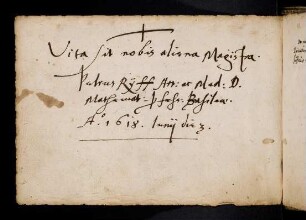 Vita sit nobis aliena Magistra.
Petrus Ryff Art: ac Med: D.
Mathemat: Profess: Basileae.
A.º 1618. Junij die 3.